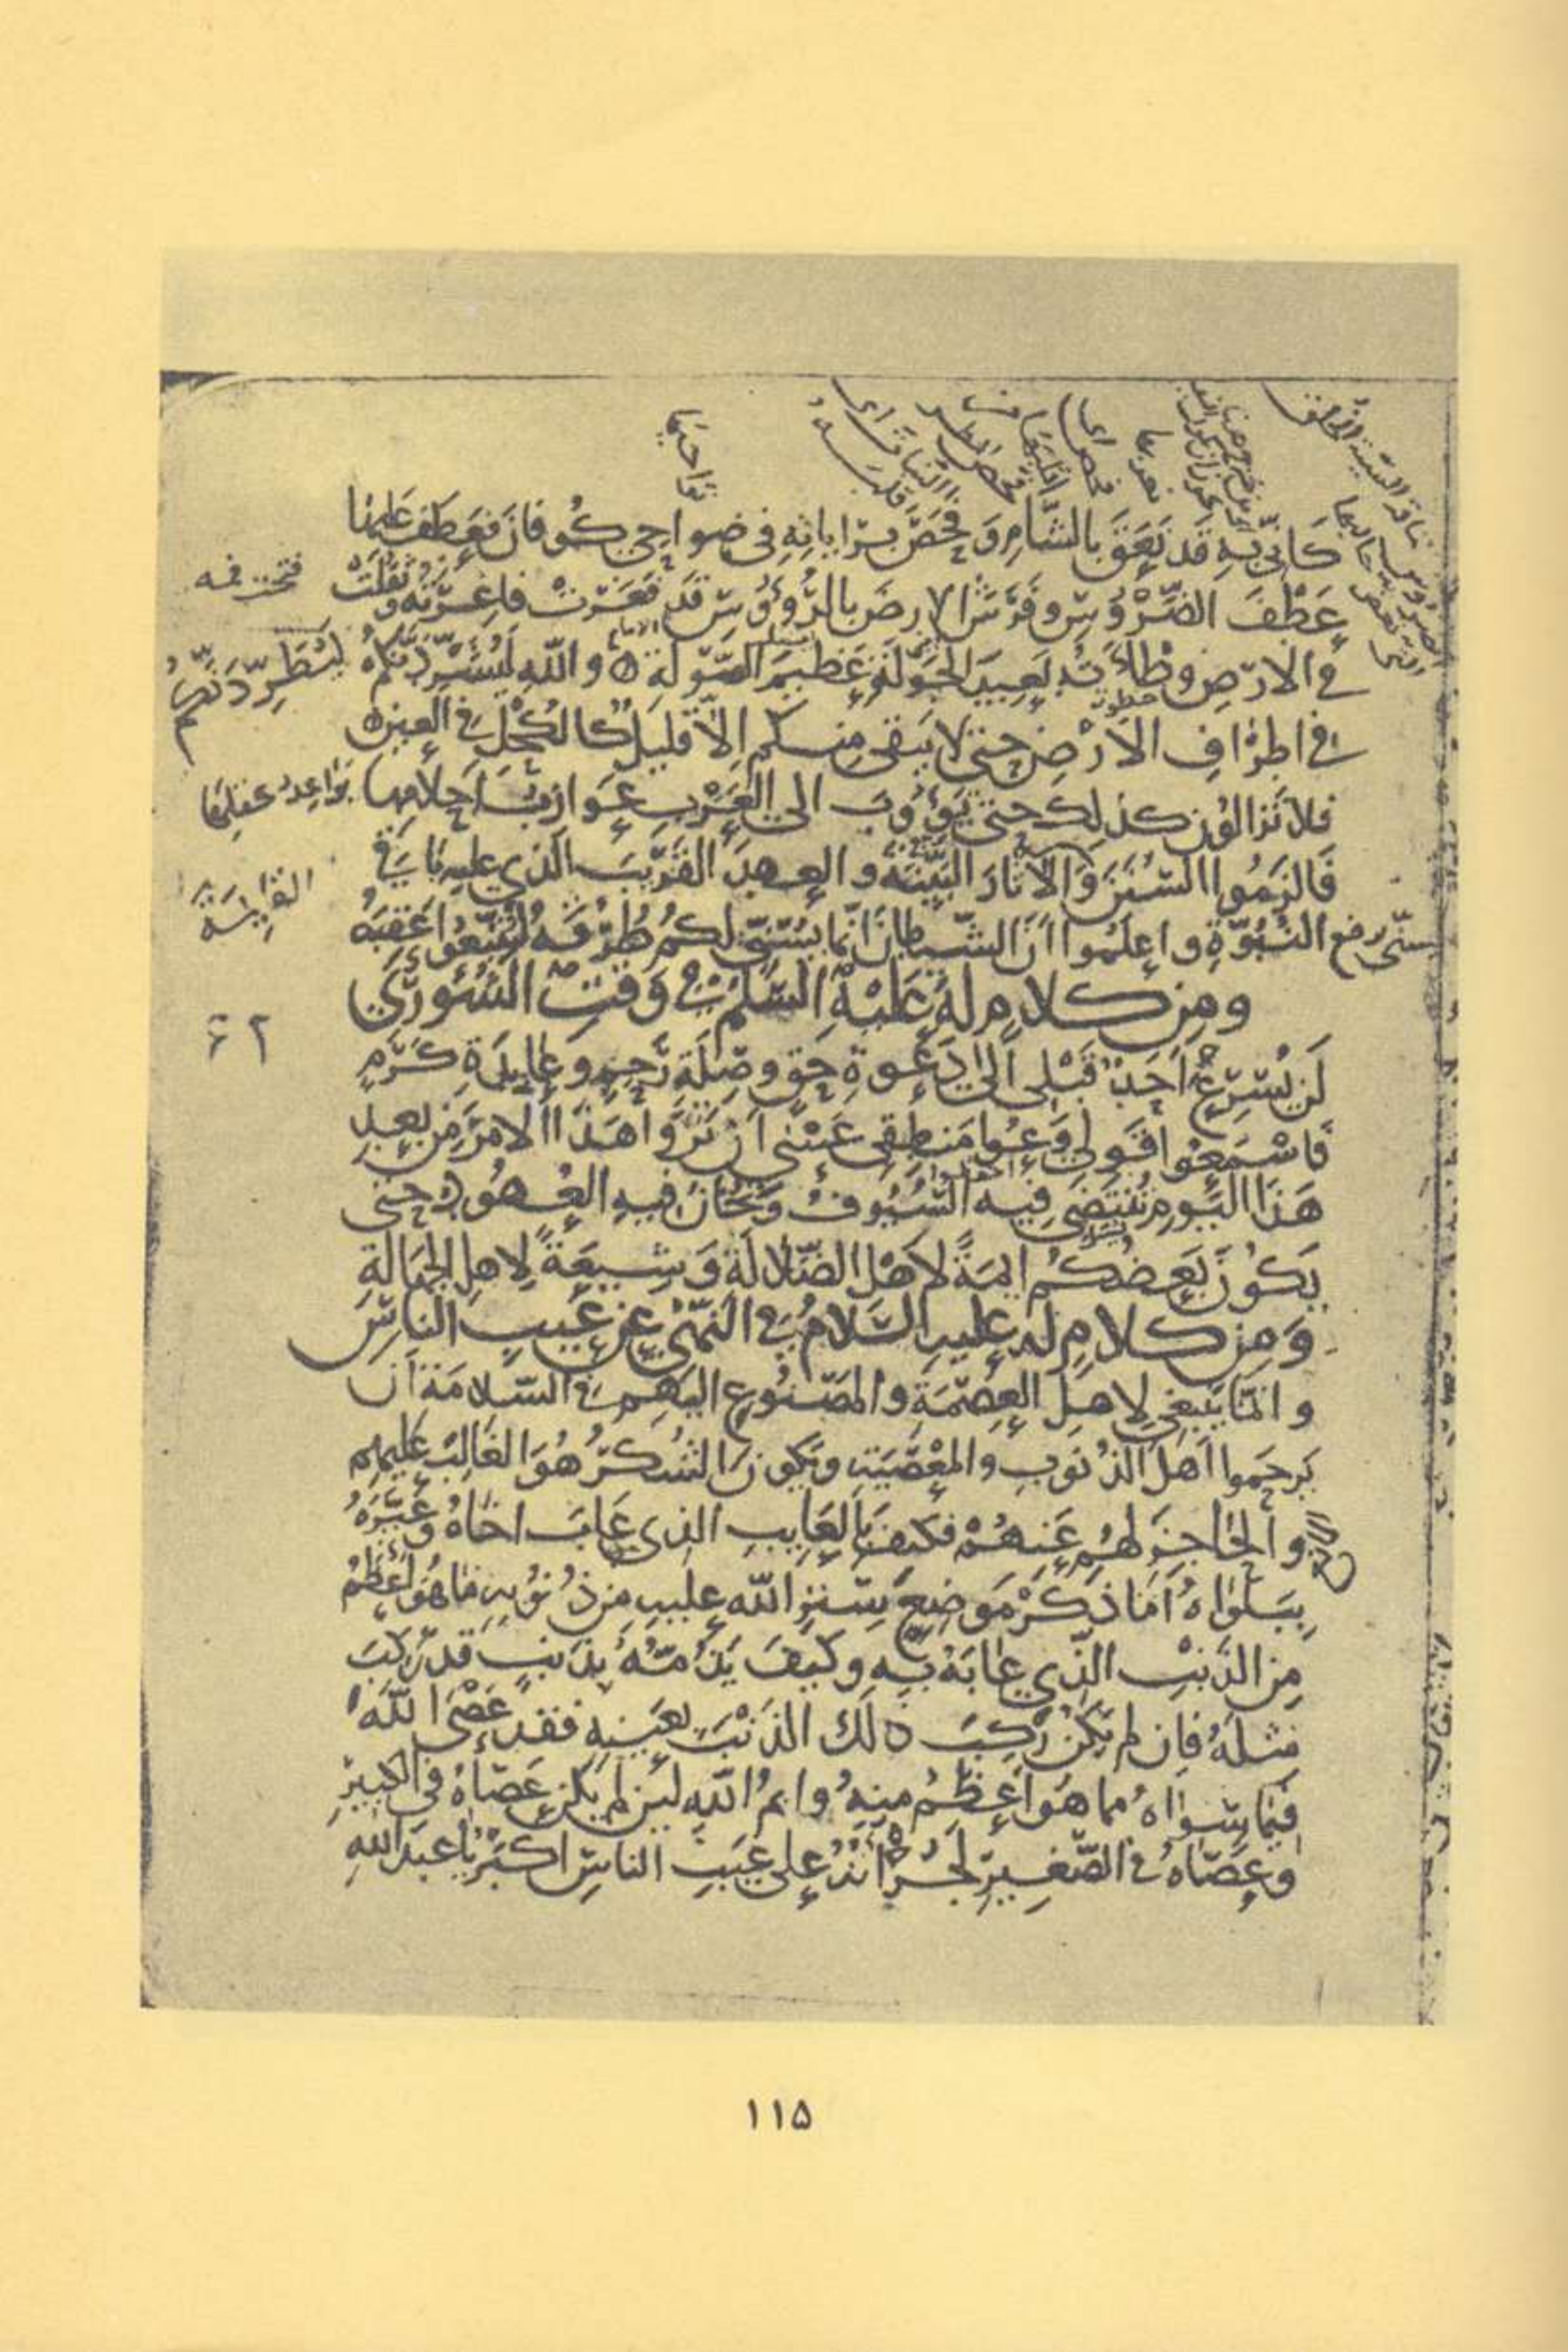 كَاَنّي بِهِ قَد نَعَقَ بِالشَّامِ وَ فَحَصَ بِرَاياتِهِ في ضَواحِي كُوفانَ فَعَطَفَ عَلَيْها
عَطْفَ الضَّرُوسِ وَفَرَشَ الارضَ بِالرُّؤُوسِ قَد فَغَرَتْ فاغِرَتُهُ وَثَقُلَتْ
في الارضِ وَطْأَتُهُ بَعِيدَ الجَوْلَةِ عَظيمَ الصَّوْلَةِ ٥ و اللّهِ لَيُشَرِّدَنَّكُمْ
في اطرافِ الاَرْضِ حتى لا يَبقى مِنكُم اِلاّ قَليلٌ كَالكُحْلِ في العينِ ٥
فلا تَزالُونَ كذلِكَ حتى تَؤُوبَ الى العَرَبِ عَوازِبُ اَحلامِها
فَالزَمُوا السُّنَنَ وَالآثارَ البَيِّنَةَ و العهدَ القَريبَ الَّذي عليهِ باقي
النُّبُوَّةِ و اعلَمُوا اَنَّ الشَّيطانَ اِنّما يُسَنّي لكُم طُرُقَهُ لِتَتَّبِعُوا عَقِبَهُ
ومن كلامٍ لهُ عَلَيْهِ السَّلم في وَقتِ الشُّورى
لَن يُسرِعَ اَحَدٌ قَبْلي اِلى دَعوَةِ حَقٍّ وصِلَةِ رَحِمٍ و عايِدَةِ كَرَمٍ
فَاسْمَعُوا قَولي وَعُوا مَنطِقي عَسى اَن تَرَوا هَذا الامرَ مِن بعدِ
هَذا اليَومِ تُنتَضى فِيهِ السُّيُوفُ وَتُخانُ فيهِ العُهُودُ حتى
يَكُونَ بَعضُكُم ايمَةً لاَهْلِ الضَّلالَةِ وَ شِيعَةً لاهلِ الجهالَةِ
وَ مِن كلامٍ له عليهِ السَّلامُ في النَّهْيِ عن عَيبِ الناسِ
و انّما يَنبَغي لاهلِ العِصمَةِ والمَصنُوعِ اليهِم في السّلامَةِ اَن
يَرحَموا اَهلَ الذُّنوبِ والمعْصِيَةِ ويَكونَ الشُّكرُ هُوَ الغالِبَ عليهِم
و الحاجِزَ لهُم عَنهُمْ فكيفَ بِالعايِبِ الذي عَابَ اخاهُ وَعَيَّرَهُ
بِبَلواهُ اَما ذَكَرَ مَوضِعَ سَترِ اللّهِ عليهِ مِن ذُنُوبِهِ ما هُوَ اَعظَمُ
مِن الذَّنبِ الَّذي عابَهُ بِهِ وكَيفَ يَذُمُّهُ بِذَنبٍ قَد رَكِبَ
مِثلَهُ فَاِن لم يَكُن رَكِبَ ذلك الذَنْبَ بعَينِهِ فقد عَصَى اللّهَ
فيما سِواهُ مما هُوَ اَعظَمُ مِنهُ وايمُ اللّهِ لَين لم يكن عَصاهُ في الكبيرِ
وعَصاهُ في الصَّغيرِ لَجُرْأَتُهُ على عَيبِ الناسِ اَكبَرُ يا عبدَ اللهِ
نواحيها
لَيُطَرِّدَنَّكُم
۶۲
۱۱۵